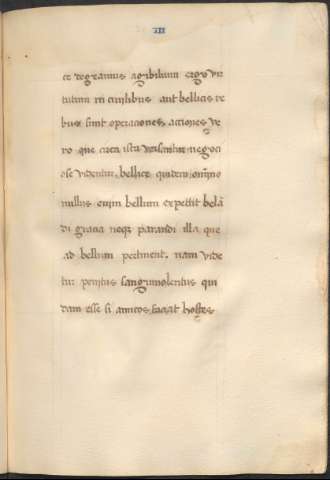 III
ce degeamus agibilium ergo vir
tutum in civilibus aut bellicis re
bus sunt operaciones, actiones ve
ro que circa ista versantur negoci
ose videntur, bellice quidem omnino
nullus enim bellum expetit belā
di gratia neqz parandi illa que
ad bellum pertinent. nam vide
tur penitus sanguinolentus qui
dam esse si amicos faciat hostes